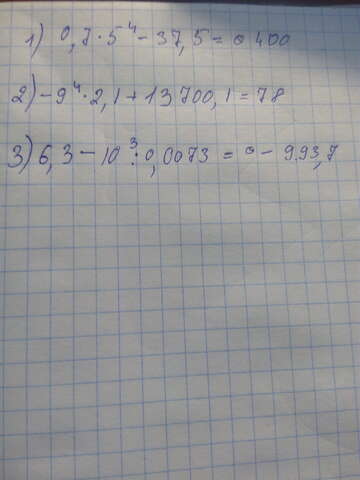 1) 0,7·5⁴-37,5=0400
2) -9⁴·2,1+13700,1=78
3) 6,3-10³:0,0073=0-993,7